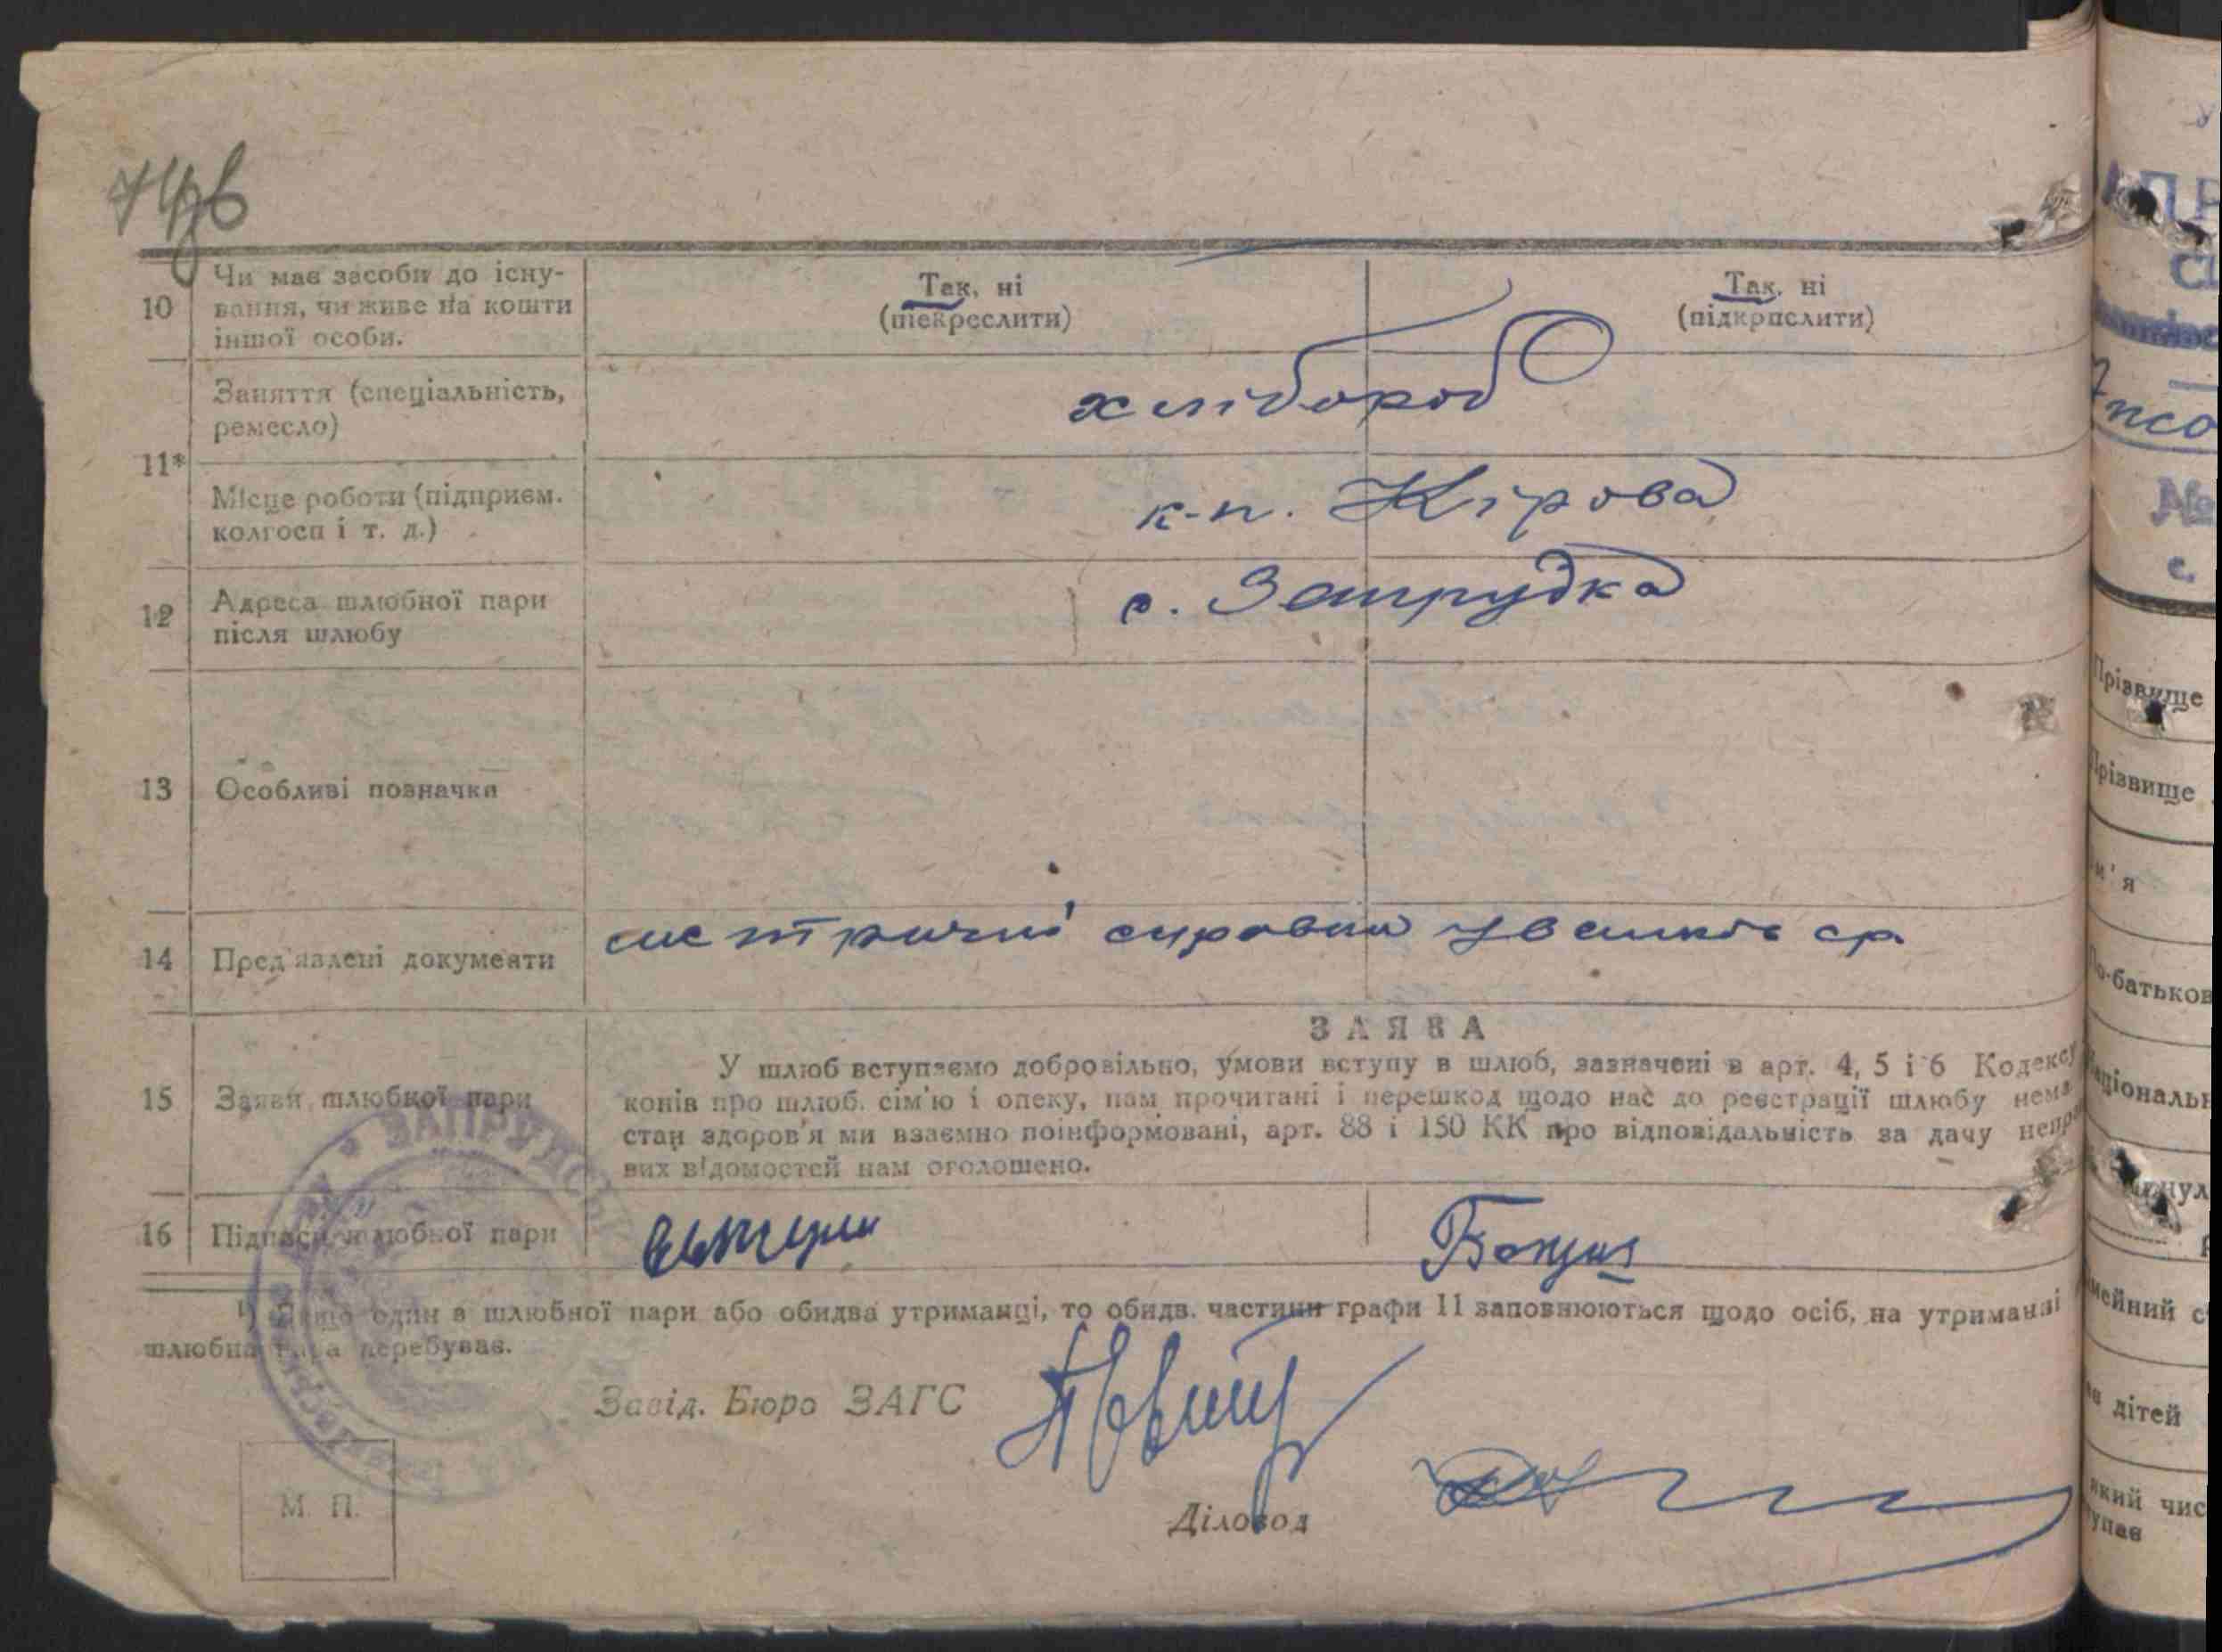 10 Чи має засоби до існу-
вання, чи живе на кошти
іншої особи.
Так, ні
(піекреслити)
Так, ні
(підкрпслити)
11* Заняття (спеціальність,
ремесло)
хлібороб
Місце роботи (підприєм.
колгосп і т. д.)
к-п. Кірова
12 Адреса шлюбної пари
після шлюбу
с. Запрудка
13 Особливі позначки
14 Пред'явлені документи
метричні
15 Заяви шлюбної пари
ЗАЯВА
У шлюб вступаємо добровільно, умови вступу в шлюб, зазначені в арт. 4, 5 і 6 Кодексу
конів про шлюб. сім'ю і опеку, нам прочитані і перешкод щодо нас до реєстрації шлюбу нема
стан здоров'я ми взаємно поінформовані, арт. 88 і 150 КК про відповідальність за дачу непра
вих відомостей нам оголошено.
16 Підписи шлюбної пари
1) Якщо один з шлюбної пари або обидва утриманці, то обидв. частини графи 11 заповнюються щодо осіб, на утриманні
шлюбна пара перебуває.
Завід. Бюро ЗАГС
Діловод
М. П.
ЗАПРУДСЬ
Прізвище
Прізвище
м'я
о-батьков
аціональн
мейний с
дітей
який чис
упає